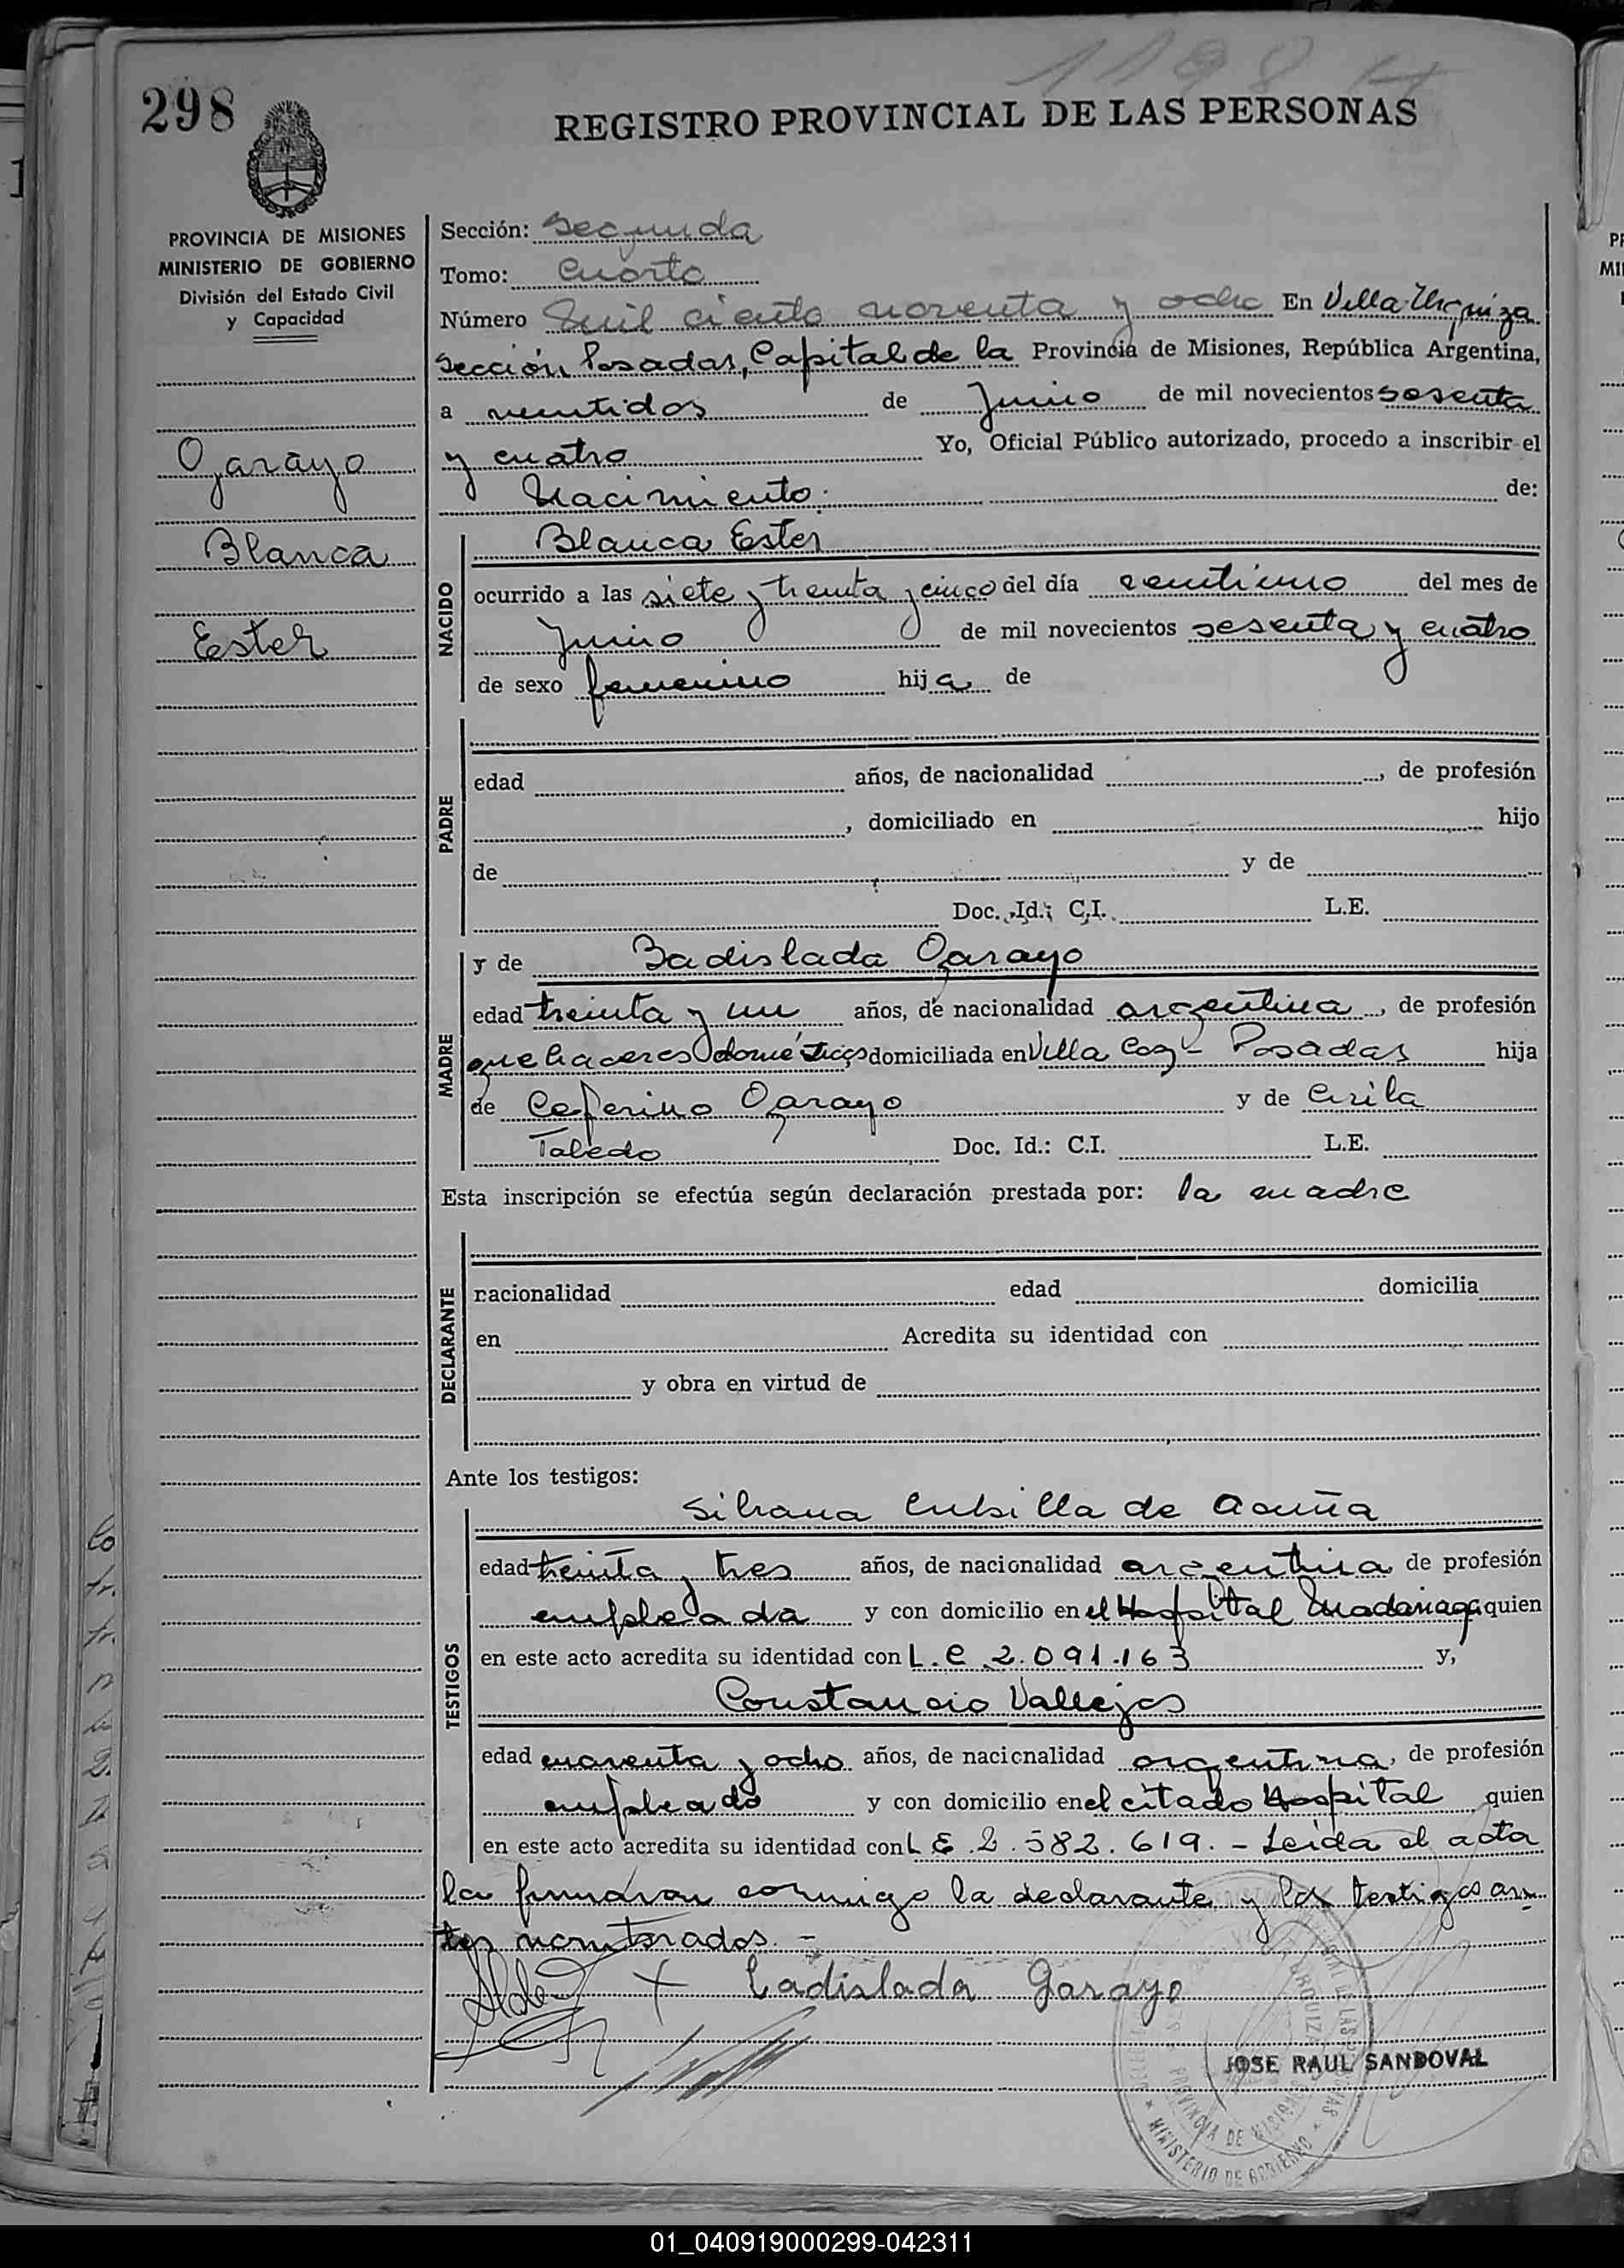 1198
298
REGISTRO PROVINCIAL DE LAS PERSONAS
PROVINCIA DE MISIONES
MINISTERIO DE GOBIERNO
División del Estado Civil
y Capacidad
Ogarayo
Blanca
Ester
Sección: Segunda
Tomo: Cuarto
Número Mil ciento noventa y ocho En Villa Urquiza
Sección Posadas, Capital de la Provincia de Misiones, República Argentina,
a veintidos de Junio de mil novecientos sesenta
y cuatro Yo, Oficial Público autorizado, procedo a inscribir el
Nacimiento. de:
NACIDO
Blanca Ester
ocurrido a las siete y treinta y cinco del día del mes de
Junio de mil novecientos sesenta y cuatro
de sexo femenino hija de
PADRE
edad años, de nacionalidad , de profesión
, domiciliado en hijo
de y de
Doc. Id.: C.I. L.E.
MADRE
y de Ladislada Ogarayo
edad treinta y un años, de nacionalidad argentina, de profesión
quehaceres domésticos domiciliada en Villa Posadas hija
de Ceferino Ogarayo y de Cirila
Toledo Doc. Id.: C.I. L.E.
Esta inscripción se efectúa según declaración prestada por: la madre
DECLARANTE
nacionalidad edad domicilia
en Acredita su identidad con
y obra en virtud de
Ante los testigos:
TESTIGOS
Silvana Cubilla de Acuña
edad treinta y tres años, de nacionalidad argentina de profesión
empleada y con domicilio en el Hospital Madariaga quien
en este acto acredita su identidad con L.C 2.091.163 y,
Constancio Vallejos
edad cuarenta y ocho años, de nacionalidad argentina, de profesión
empleado y con domicilio en el citado Hospital quien
en este acto acredita su identidad con L E 2.582.619. - Leida el acta
la firmaron conmigo la declarante y los testigos an-
tes nombrados. -
Ladislada Garayo
JOSE RAUL SANDOVAL
PROVINCIA DE MISIONES
MINISTERIO DE GOBIERNO
01_040919000299-042311